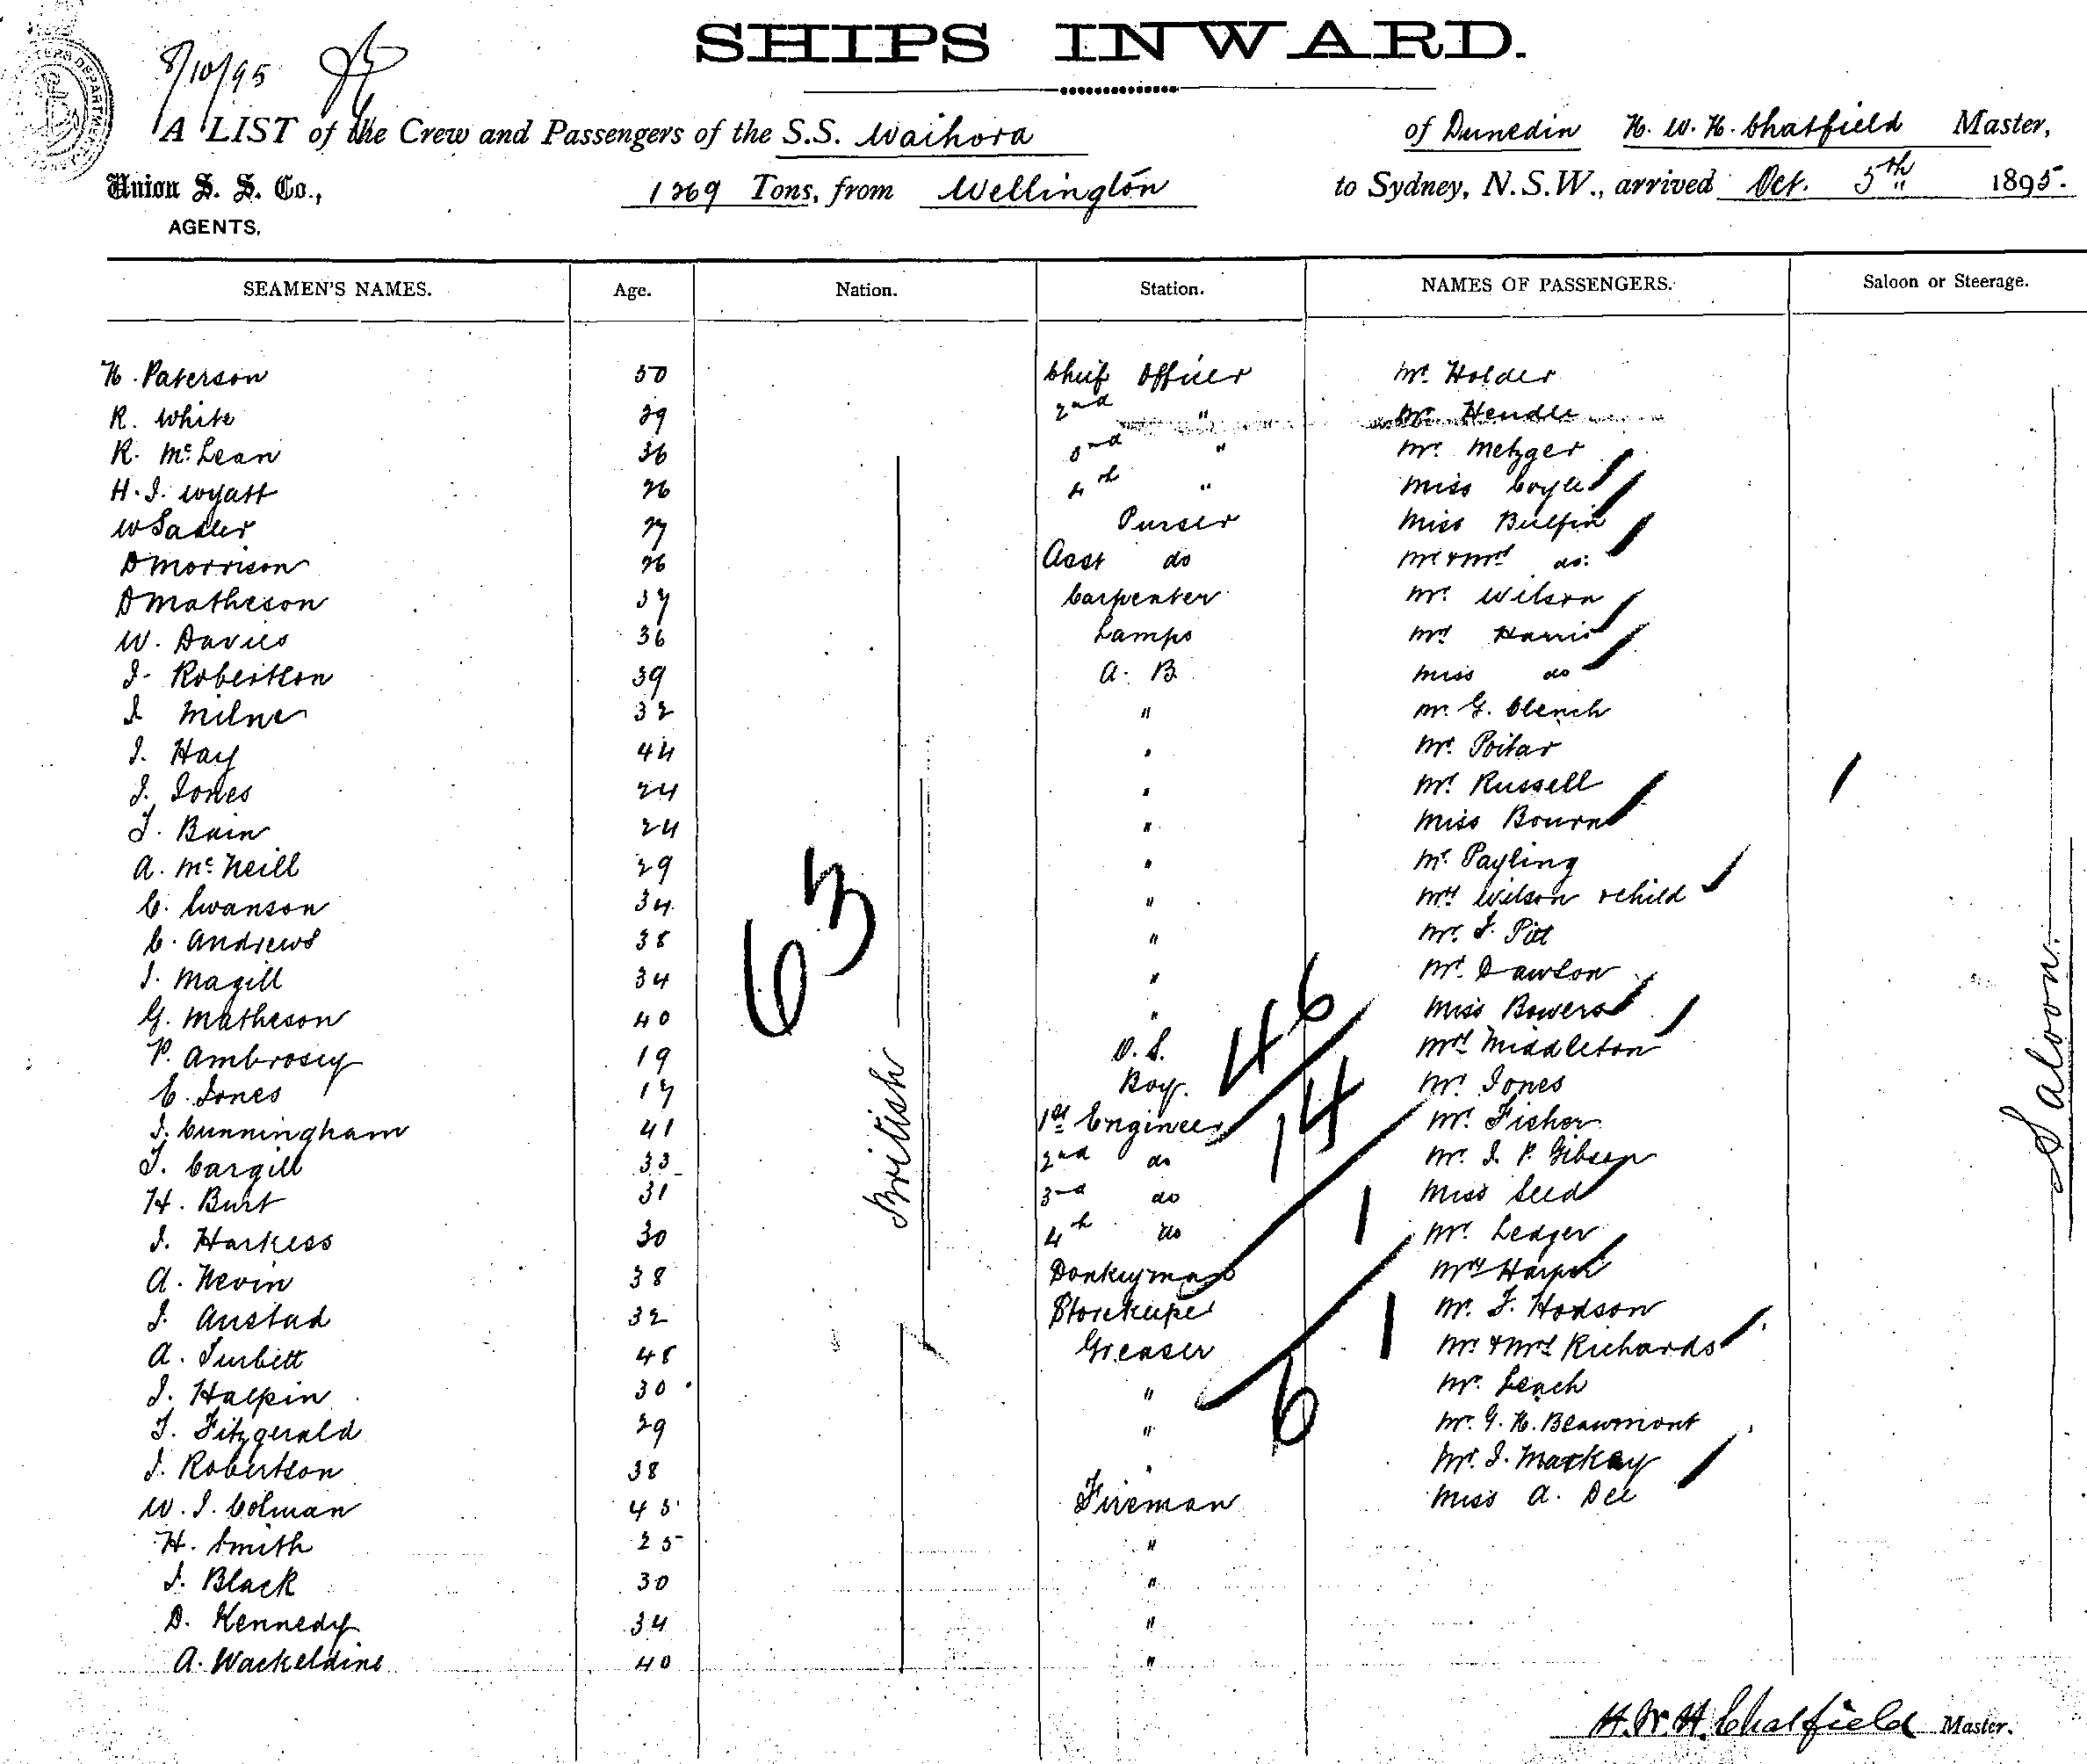 SHIPS INWARD.
8/10/95
A LIST of the Crew and Passengers of the S.S. Waihora of Dunedin H. W. H. Chatfield Master,
Union S. S. Co., 1269 Tons, from Wellington to Sydney, N.S.W., arrived Oct. 5th 1895.
AGENTS.
SEAMEN'S NAMES. Age. Nation. Station. NAMES OF PASSENGERS. Saloon or Steerage.
H. Paterson 50 Chief Officer Mr. Holder
R. White 29 2nd " Mr. Hendle
R. McLean 36 3rd " Mr. Metzger
H. J. Wyatt 26 4th " Miss Coyle
W Sadler 27 Purser Miss Bulfin
D Morrison 26 Asst do Mr & Mrs do.
D Matheson 37 Carpenter Mr. Wilson
W. Davies 36 Lamps Mrs Harris
J. Robertson 39 A. B Miss do
J Milne 32 " Mr. G. Clench
J. Hay 44 " Mr. Poitar
J. Jones 24 " Mr. Russell 1
T. Bain 24 " Miss Bourne
A. McNeill 29 " Mr. Payling
C. Swanson 34 " Mrs Wilson & child
C. Andrews 38 " Mr. J. Pitt
J. Magill 34 " Mr. Dawson
G. Matheson 40 " Miss Bowers
P. Ambrosey 19 O. S. Mrs Middleton
C. Jones 17 Boy. Mr. Jones
J. Cunningham 41 1st Engineer Mr. Fisher
T. Cargill 33 2nd do Mr. J. P. Gibson
H. Burt 31 3rd do Miss Seed
J. Harkess 30 4th do Mr. Ledger
A. Nevin 38 Donkeyman Mrs Harper
J. Anstad 32 Storekeeper Mr. F. Hodson
A. Turbett 48 Greaser Mr. & Mrs Richards
J. Halpin 30 " Mr. Leach
T. Fitzgerald 29 " Mr. G. H. Beaumont
J. Robertson 38 " Mr. J. Mackay
W. J. Colman 45 Fireman Miss A. Dee
H. Smith 25 "
J. Black 30 "
D. Kennedy 34 "
A. Wackeldine 40 "
63
British
46
14
1
1
6
Saloon.
H. W. H. Chatfield Master.